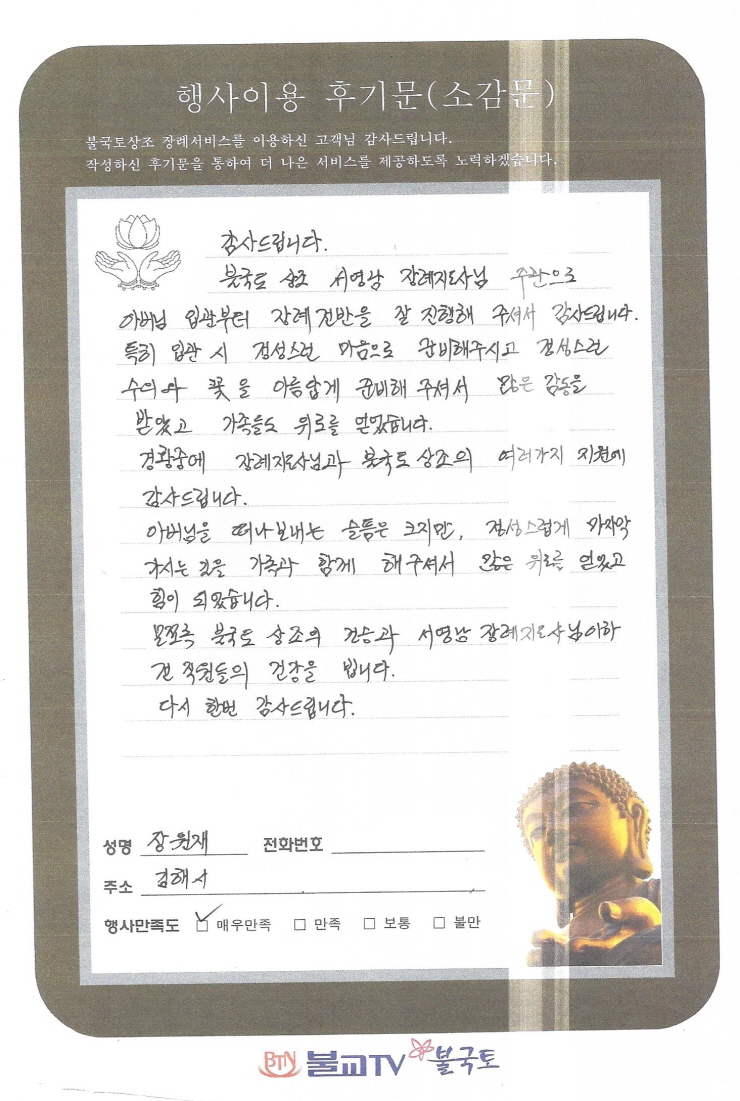 행사이용 후기문(소감문)
불국토상조 장례서비스를 이용하신 고객님 감사드립니다.
작성하신 후기문을 통하여 더 나은 서비스를 제공하도록 노력하겠습니다.
감사드립니다.
불국토 상조 서영남 장례지도사님 주관으로
아버님 입관부터 장례전반을 잘 진행해 주셔서 감사드립니다.
특히 입관 시 정성스런 마음으로 준비해주시고 정성스런
수의와 꽃을 아름답게 준비해 주셔서 많은 감동을
받았고 가족들도 위로를 얻었습니다.
경황중에 장례지도사님과 불국토 상조의 여러가지 지원에
감사드립니다.
아버님을 떠나보내는 슬픔은 크지만, 정성스럽게 마지막
가시는 길을 가족과 함께 해주셔서 많은 위로를 얻었고
힘이 되었습니다.
모쪼록 불국토 상조의 건승과 서영남 장례지도사님이하
전 직원들의 건강을 빕니다.
다시 한번 감사드립니다.
성명 장원재 전화번호
주소 김해시
행사만족도 ☑ 매우만족 □ 만족 □ 보통 □ 불만
BTN 불교TV 불국토